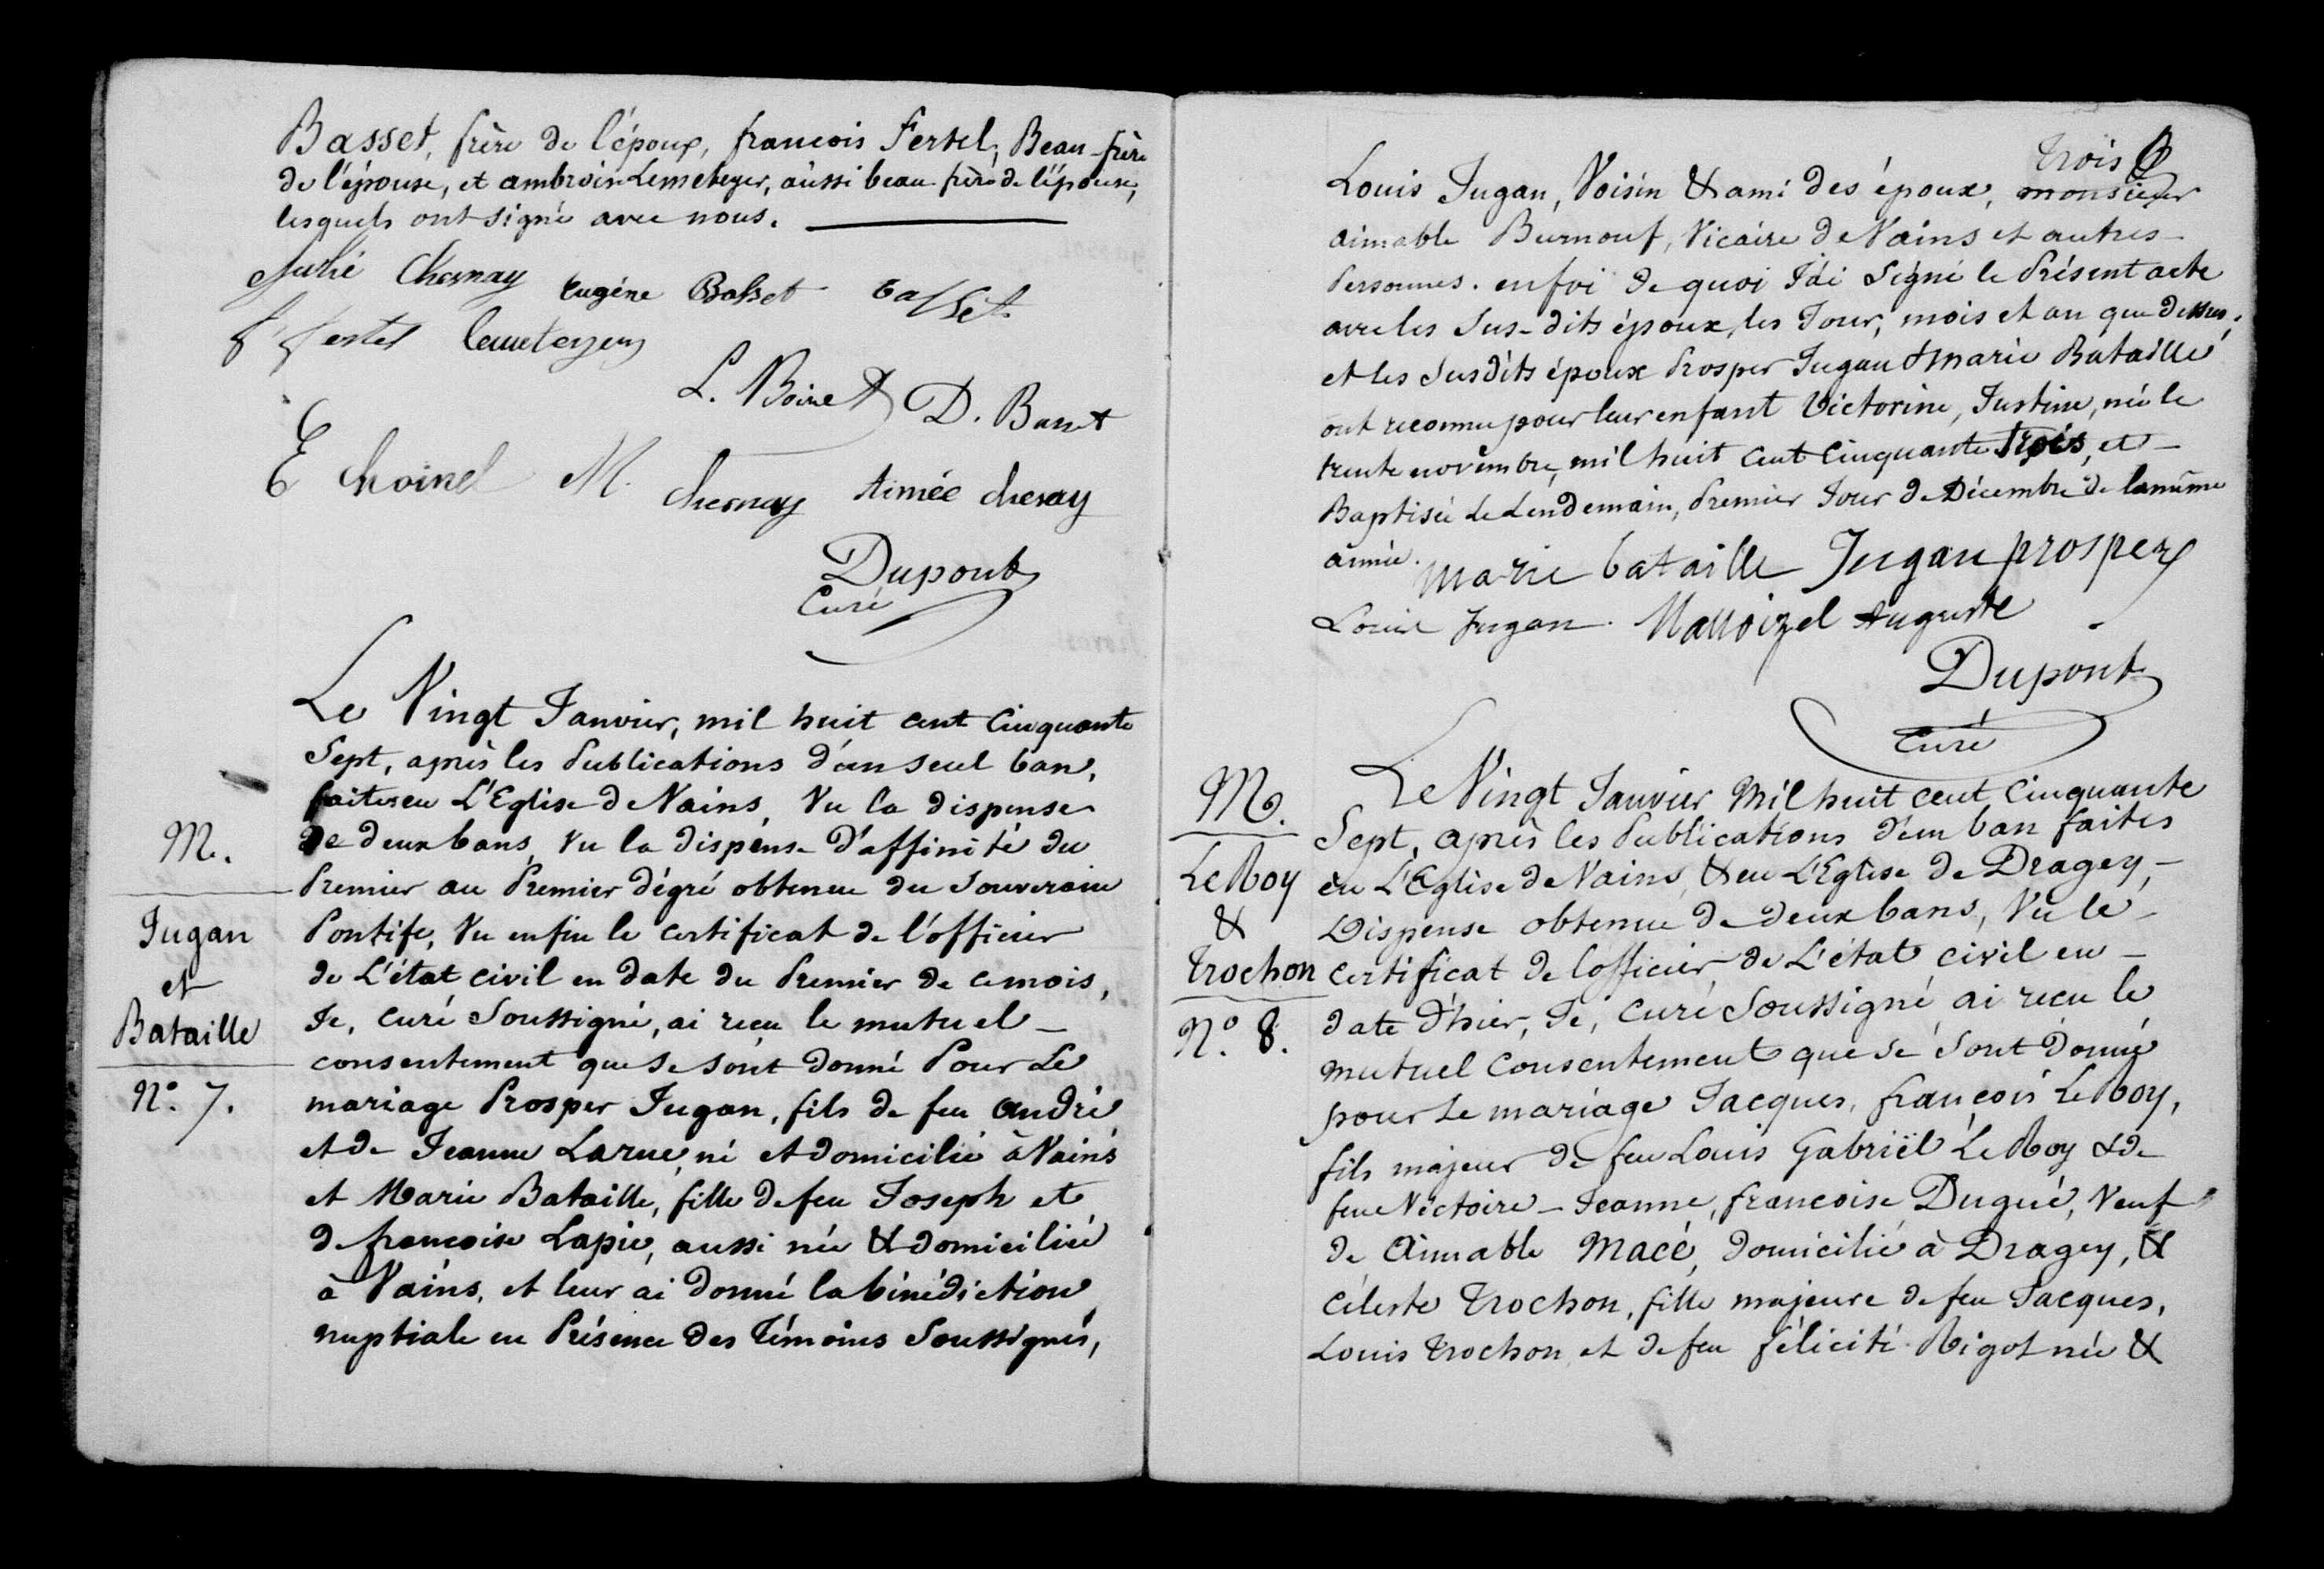 Basset, frère de l'époux, francois Fertel, Beau-frère
de l'épouse, et ambroise Lemeteyer, aussi beau-frère de l'épouse,
lesquels ont signé avec nous.
Julie Chesnay Eugène Basset Basset
f fertel Lemeteyer
L. Boinet D. Basset
E Choinel M. Chesnay Aimée chesnay
Dupont
Curé
Le Vingt Janvier, mil huit cent Cinquante
Sept, après les Publications d'un seul ban,
faites en L'Eglise de Vains, Vu la dispense
de deux bans, Vu la dispense d'affinité du
Premier au Premier dégré obtenue du Souverain
Pontife, Vu enfin le certificat de l'officier
de L'état civil en date du Premier de ce mois,
Je, curé Soussigné, ai reçu le mutuel
consentement que se sont donné Pour Le
mariage Prosper Jugan, fils de feu andré
et de Jeanne Larue, né et domicilié à Vains
et Marie Bataille, fille de feu Joseph et
de francoise Lapie, aussi née & domiciliée
à Vains, et leur ai donné la bénédiction
nuptiale en Présence des Témoins Soussignés,
M.
Jugan
et
Bataille
N°. 7.
trois
Louis Jugan, Voisin & ami des époux, monsieur
aimable Burnouf, Vicaire de Vains et autres
Personnes. en foi de quoi J'ai Signé le Présent acte
avec les Sus-dits époux, les Jour, mois et an que dessus.
et les Susdits époux Prosper Jugan & Marie Bataille
ont reconnu pour leur enfant Victorine, Justine, née le
trente novembre, mil huit Cent Cinquante trois, et
Baptisée Le Lendemain, Premier Jour de Décembre de la même
année.
Marie bataille Jugan prosper
Louis Jugan. Malloizel Auguste
Dupont
Curé
M.
LeRoy
&
Trochon
N°. 8.
Le Vingt Janvier Mil huit cent Cinquante
Sept, après les Publications d'un ban faites
en L'Eglise de Vains, & en L'Eglise de Dragey,
Dispense obtenue de deux bans, Vu le
certificat de l'officier de L'état civil en
date d'hier, Je, Curé Soussigné, ai reçu le
mutuel Consentement que se sont donné
pour Le mariage Jacques, françois Le Roy,
fils majeur de feu Louis Gabriël Le Roy & de
feue Victoire-Jeanne, francoise Dugué, Veuf
de Aimable Macé, domicilié à Dragey, &
Céleste Trochon, fille majeure de feu Jacques,
Louis Trochon et de feu félicité Rigot née &